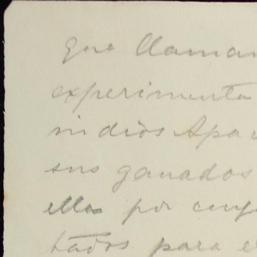 que llaman
experimenta
indios Apa
sus ganados
ellos por
tados para e